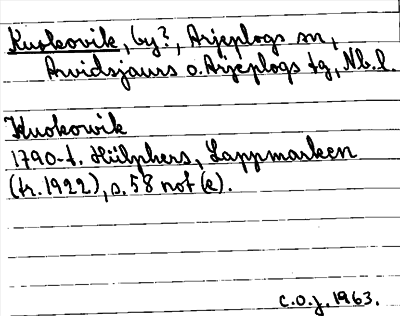 Kuokovik, by?, Arjeplogs sn,
Arvidsjaurs o. Arjeplogs tg, Nb. l.
Kuokowik
1790-t. Hülphers, Lappmarken
(tr. 1922), s. 58 not (e).
C.O.J. 1963.